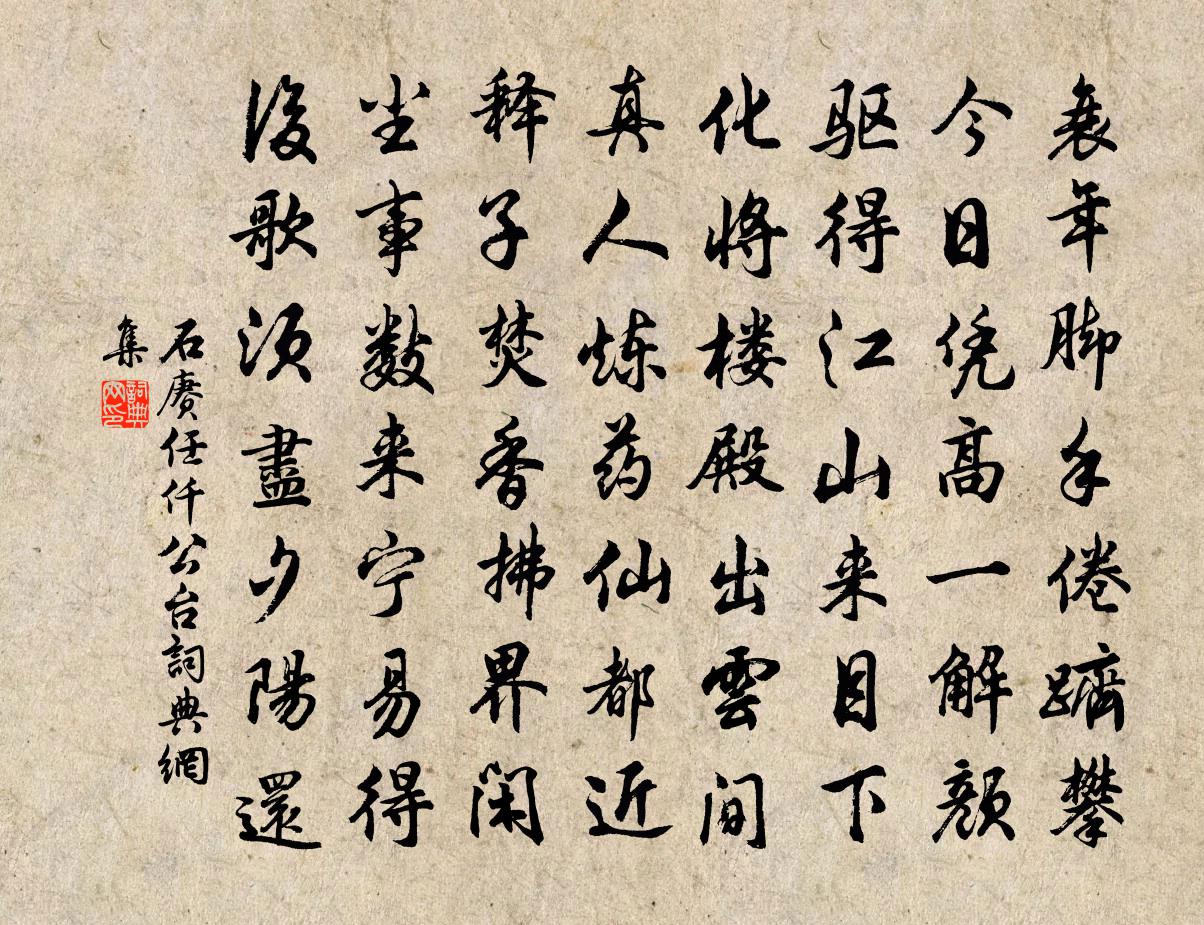 衰年脚手倦跻攀
今日凭高一解颜
驱得江山来目下
化将楼殿出雲间
真人炼药仙都近
释子焚香拂界闲
尘事数来宁易得
浩歌须盡夕陽還
石赓任仟公台詞典網
集
詞典网印